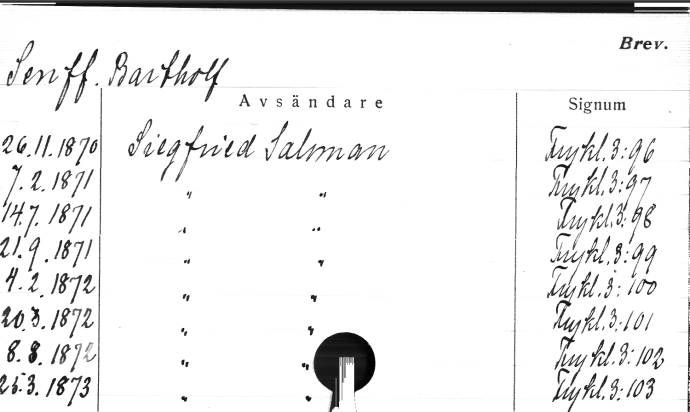 Brev.
Senff. Bartholf
Avsändare Signum
26.11.1870 Siegfried Salsman Frykl.3:96
7.2.1871 " " Frykl.3:97
14.7.1871 " " Frykl.3:98
21.9.1871 " " Frykl.3:99
4.2.1872 " " Frykl.3:100
20.3.1872 " " Frykl.3:101
8.8.1872 " " Frykl.3:102
25.3.1873 " " Frykl.3:103